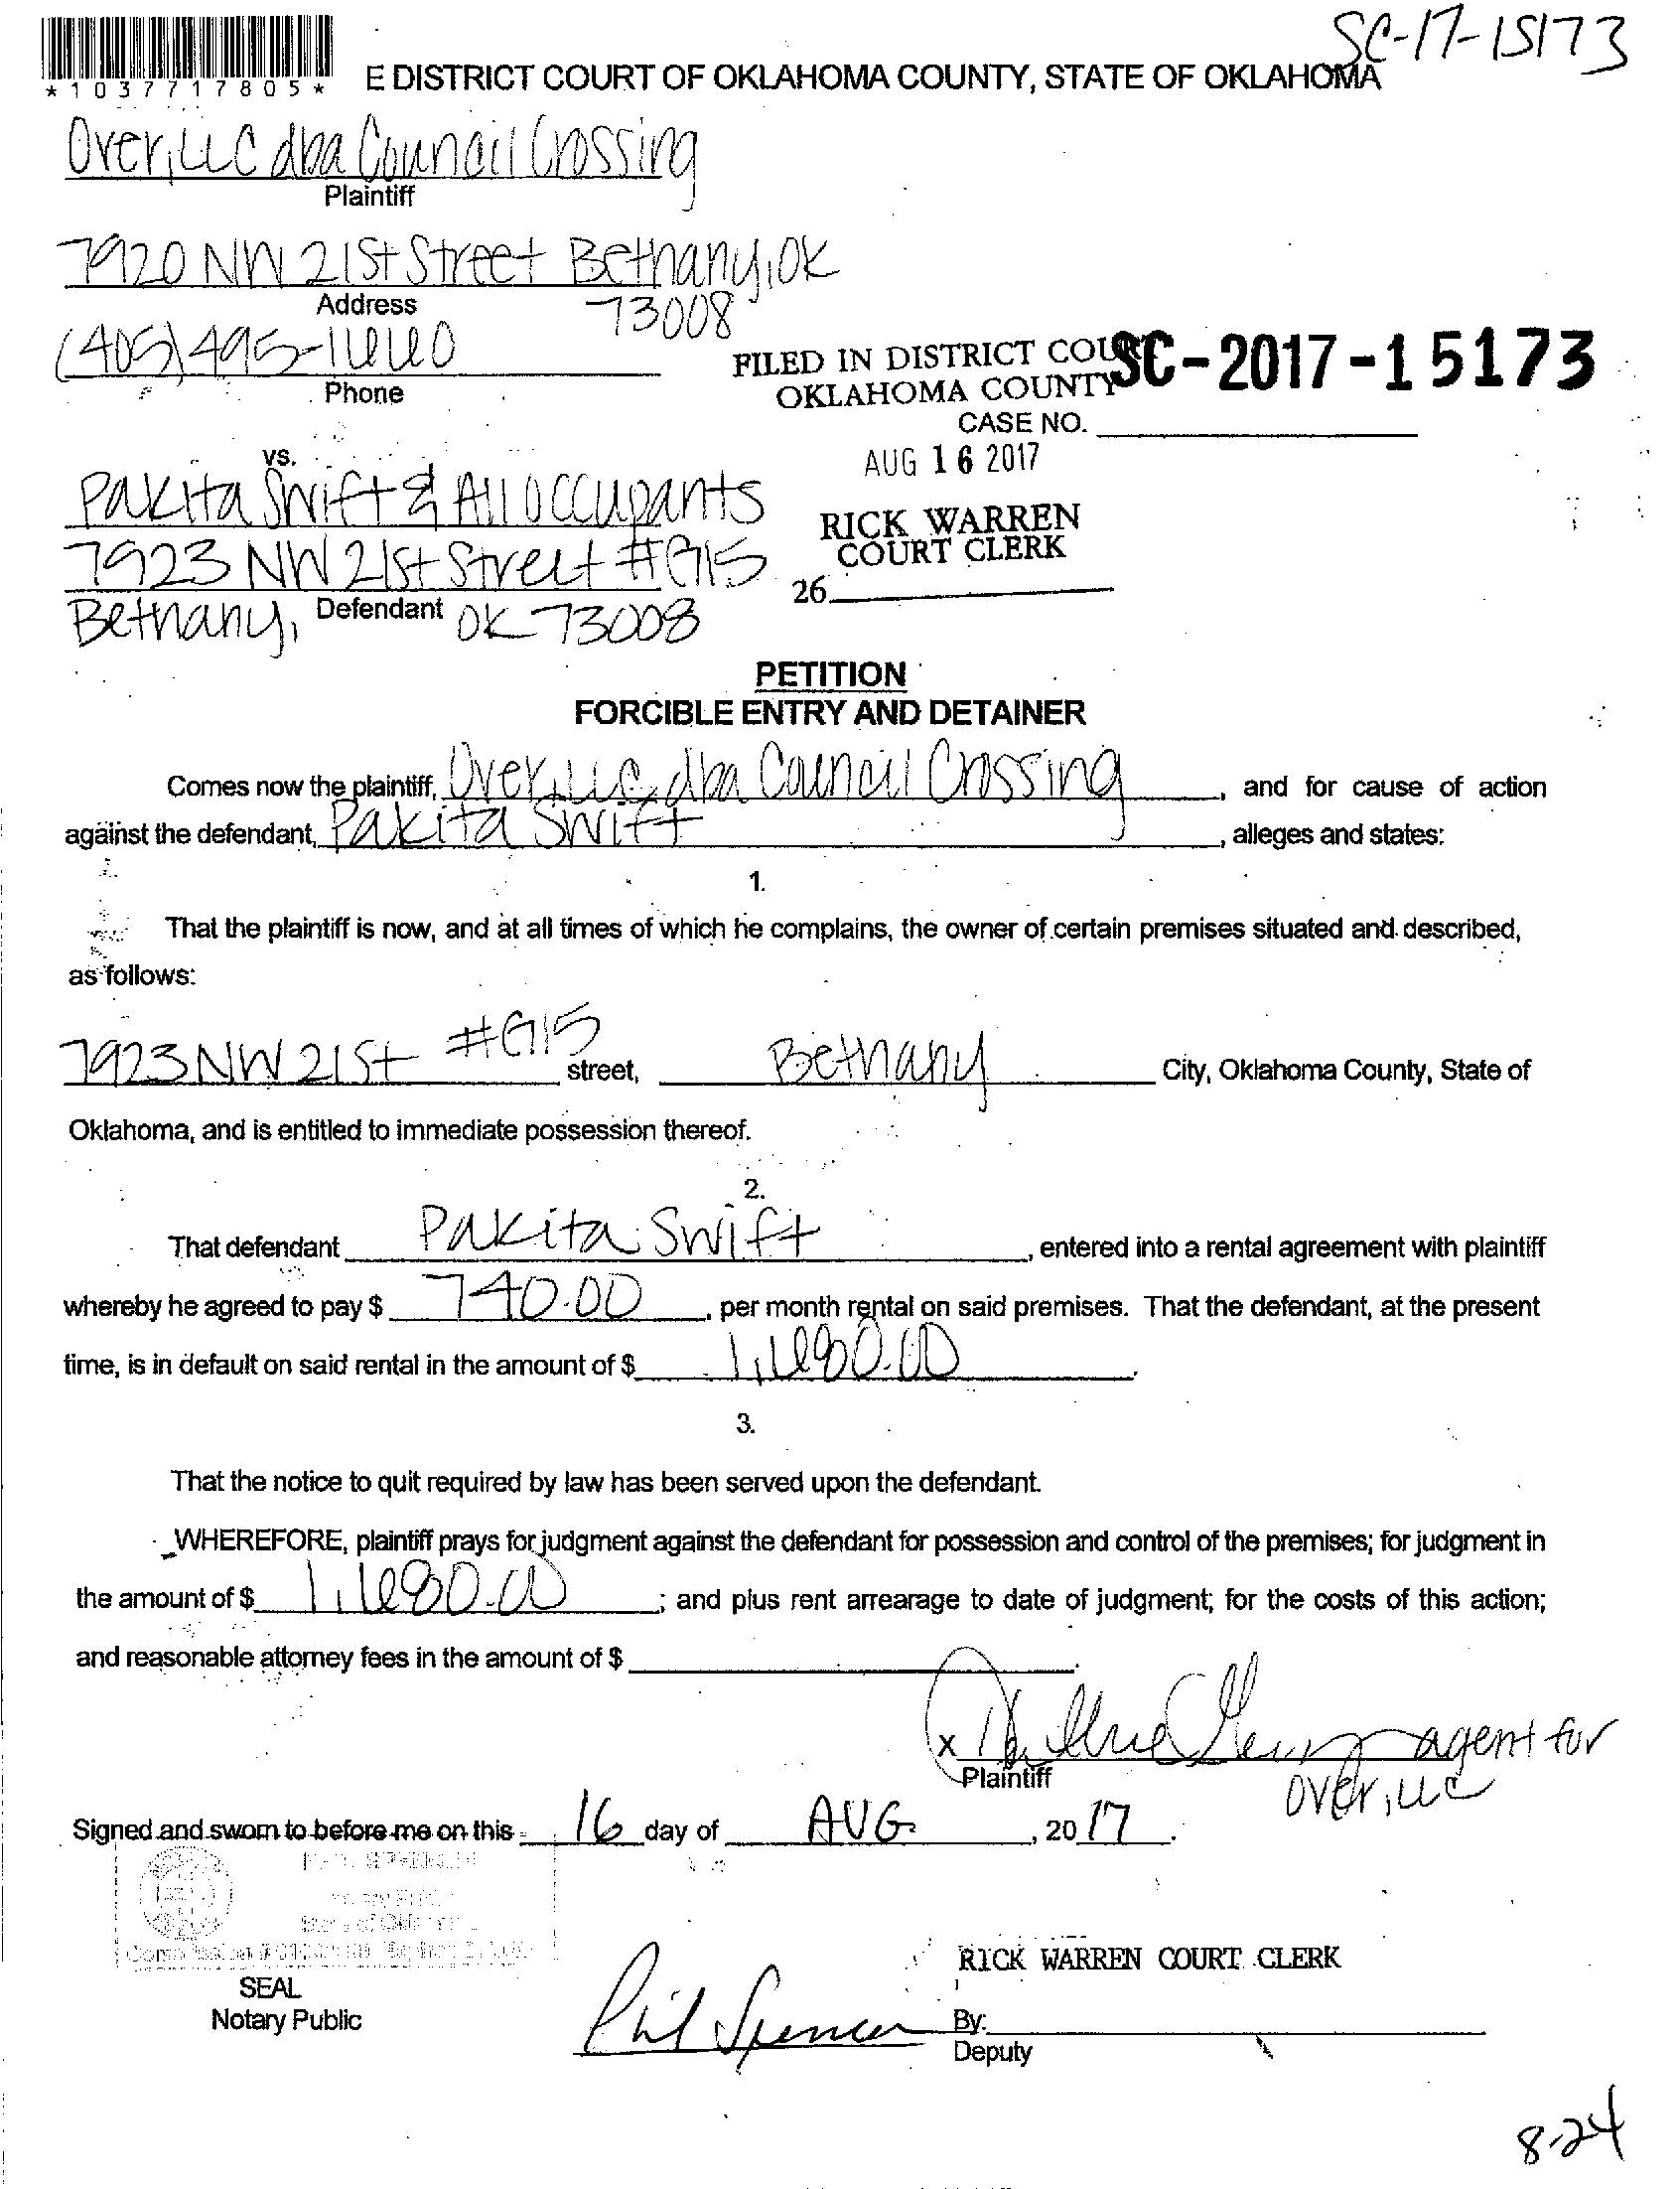 SC-17-15173
*1037717805*
E DISTRICT COURT OF OKLAHOMA COUNTY, STATE OF OKLAHOMA
Over, LLC dba Council Crossing
Plaintiff
7920 NW 21st Street Bethany, OK
Address
73008
(405) 495-1660
Phone
FILED IN DISTRICT COURT
OKLAHOMA COUNTY
SC-2017-15173
CASE NO.
AUG 16 2017
vs.
Pakita Swift & All Occupants
RICK WARREN
COURT CLERK
7923 NW 21st Street #G15
26
Bethany, OK 73008
Defendant
PETITION
FORCIBLE ENTRY AND DETAINER
Comes now the plaintiff, Over, LLC dba Council Crossing, and for cause of action
against the defendant, Pakita Swift, alleges and states:
1.
That the plaintiff is now, and at all times of which he complains, the owner of certain premises situated and described,
as follows:
7923 NW 21st #G15 street, Bethany City, Oklahoma County, State of
Oklahoma, and is entitled to immediate possession thereof.
2.
That defendant Pakita Swift, entered into a rental agreement with plaintiff
whereby he agreed to pay $ 740.00, per month rental on said premises. That the defendant, at the present
time, is in default on said rental in the amount of $ 1,680.00.
3.
That the notice to quit required by law has been served upon the defendant.
WHEREFORE, plaintiff prays for judgment against the defendant for possession and control of the premises; for judgment in
the amount of $ 1,680.00; and plus rent arrearage to date of judgment; for the costs of this action;
and reasonable attorney fees in the amount of $
x agent for
Plaintiff
Over, LLC
Signed and sworn to before me on this 16 day of AUG, 2017.
State of
RICK WARREN COURT CLERK
SEAL
Notary Public
Phil Spencer
By:
Deputy
8-24